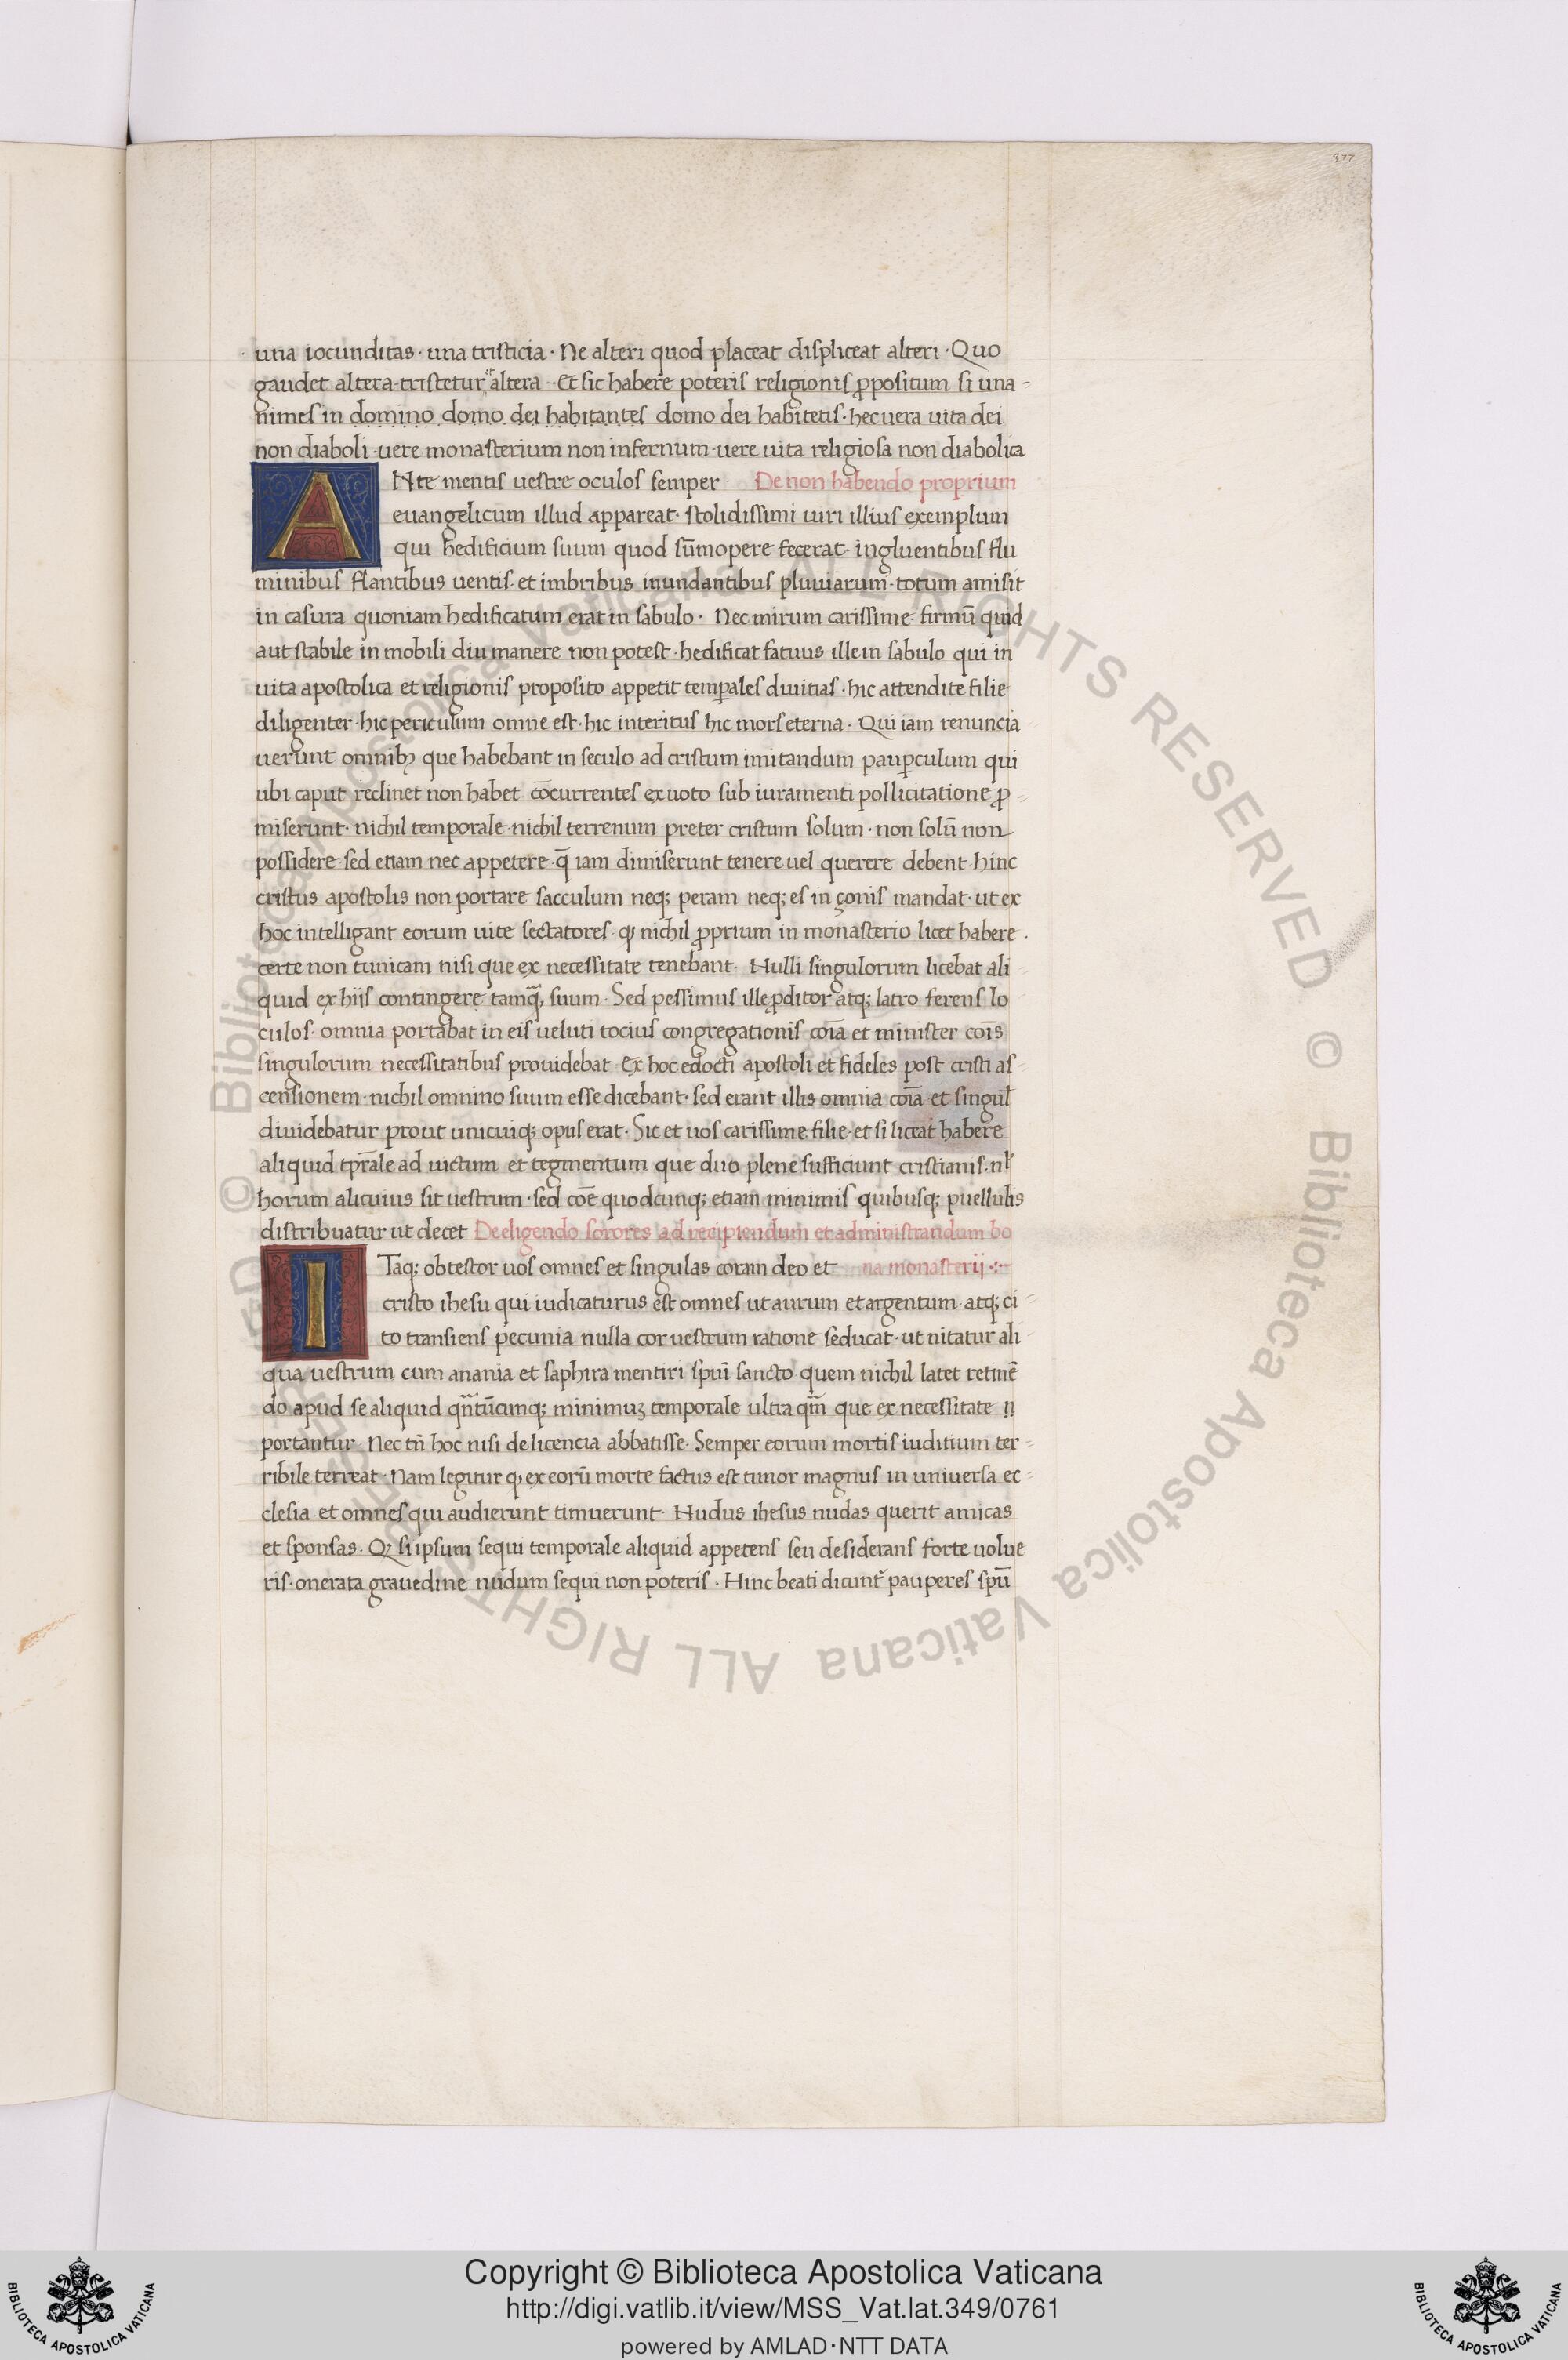 377
una iocunditas · una tristicia · Ne alteri quod placeat displiceat alteri · Quo
gaudet altera · tristetur et altera · Et sic habere poteris religionis ꝓpositum si una-
nimes in domino domo dei habitantes domo dei habitetis · hec uera uita dei
non diaboli · uere monasterium non infernum · uere uita religiosa non diabolica
ANte mentis uestre oculos semper De non habendo proprium
euangelicum illud appareat · stolidissimi uiri illius exemplum
qui hedificium suum quod sūmopere fecerat · ingluentibus flu
minibus flantibus uentis · et imbribus inundantibus pluuiarum · totum amisit
in casura quoniam hedificatum erat in sabulo · Nec mirum carissime · firmū quid
aut stabile in mobili diu manere non potest · hedificat fatuus ille in sabulo qui in
uita apostolica et religionis proposito appetit temꝑales diuitias · hic attendite filie
diligenter · hic periculum omne est · hic interitus hic mors eterna · Qui iam renuncia
uerunt omnibꝫ que habebant in seculo ad cristum imitandum pauꝑculum qui
ubi caput reclinet non habet cōcurrentes ex uoto sub iuramenti pollicitatione ꝓ-
miserunt · nichil temporale · nichil terrenum preter cristum solum · non solū non
possidere · sed etiam nec appetere · q̄ iam dimiserunt tenere uel querere debent · hinc
cristus apostolis non portare sacculum neqꝫ peram neqꝫ es in çonis mandat · ut ex
hoc intelligant eorum uite sectatores · ꝙ nichil ꝓprium in monasterio licet habere ·
certe non tunicam nisi que ex necessitate tenebant · Nulli singulorum licebat ali
quid ex hijs contingere tamq̄ suum · Sed pessimus ille ꝓditor atqꝫ latro ferens lo
culos · omnia portabat in eis ueluti tocius congregationis cōia et minister cōis
singulorum necessitatibus prouidebat · Ex hoc edocti apostoli et fideles post cristi as-
censionem · nichil omnino suum esse dicebant · sed erant illis omnia cōia et singul̄
diuidebatur prout unicuiqꝫ opus erat · Sic et uos carissime filie · et si liceat habere
aliquid tp̄rale ad uictum et tegmentum que duo plene sufficiunt cristianis · nl̄
horum alicuius sit uestrum · sed cōe quodcunqꝫ etiam minimis quibusqꝫ puellulis
distribuatur ut decet De eligendo sorores ad recipiendum et administrandum bo
ITaqꝫ obtestor uos omnes et singulas coram deo et na monasterij ·:·
cristo ihesu qui iudicaturus est omnes ut aurum et argentum atqꝫ ci-
to transiens pecunia nulla cor uestrum ratione seducat · ut nitatur ali-
qua uestrum cum anania et saphira mentiri spūi sancto quem nichil latet retinē
do apud se aliquid qn̄tūcunqꝫ minimuꝫ temporale ultra qm̄ que ex necessitate n
portantur · Nec tn̄ hoc nisi de licencia abbatisse · Semper eorum mortis iuditium ter-
ribile terreat · Nam legitur ꝙ ex eorū morte factus est timor magnus in uniuersa ec-
clesia et omnes qui audierunt timuerunt · Nudus ihesus nudas querit amicas
et sponsas · Qꝫ si ipsum sequi temporale aliquid appetens seu desiderans forte uolue
ris · onerata grauedine nudum sequi non poteris · Hinc beati dicunt̄ pauperes spū
© Biblioteca Apostolica Vaticana ALL RIGHTS RESERVED © Biblioteca Apostolica Vaticana ALL RIGHTS RESERVED
Copyright © Biblioteca Apostolica Vaticana
http://digi.vatlib.it/view/MSS_Vat.lat.349/0761
powered by AMLAD·NTT DATA
BIBLIOTECA APOSTOLICA VATICANA
BIBLIOTECA APOSTOLICA VATICANA